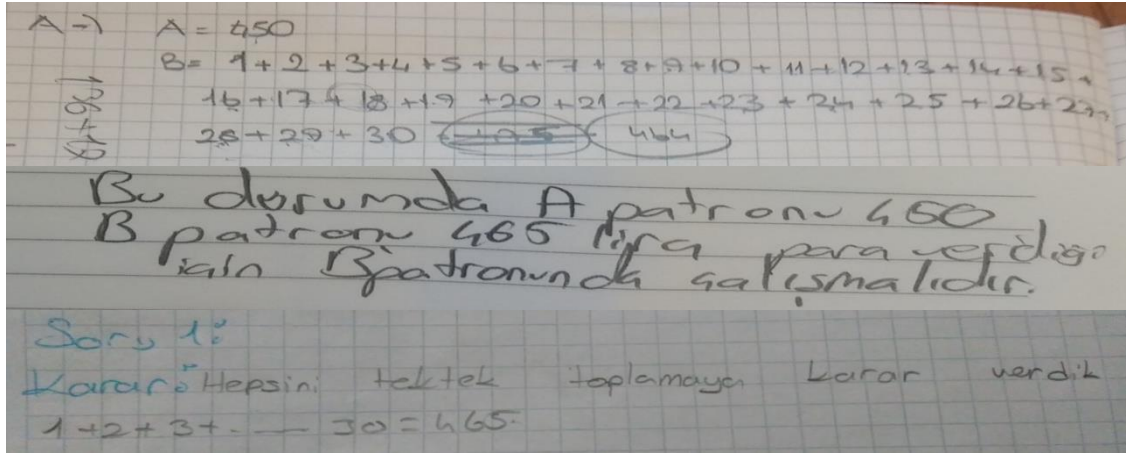 A → A = 450
B = 1+2+3+4+5+6+7+8+9+10+11+12+13+14+15+
16+17+18+19+20+21+22+23+24+25+26+27+
28+29+30 464
Bu durumda A patronu 450
B patronu 465 lira para verdiği
için B patronunda çalışmalıdır.
Soru 1:
Karar: Hepsini tek tek toplamaya karar verdik
1+2+3+.— 30=465.